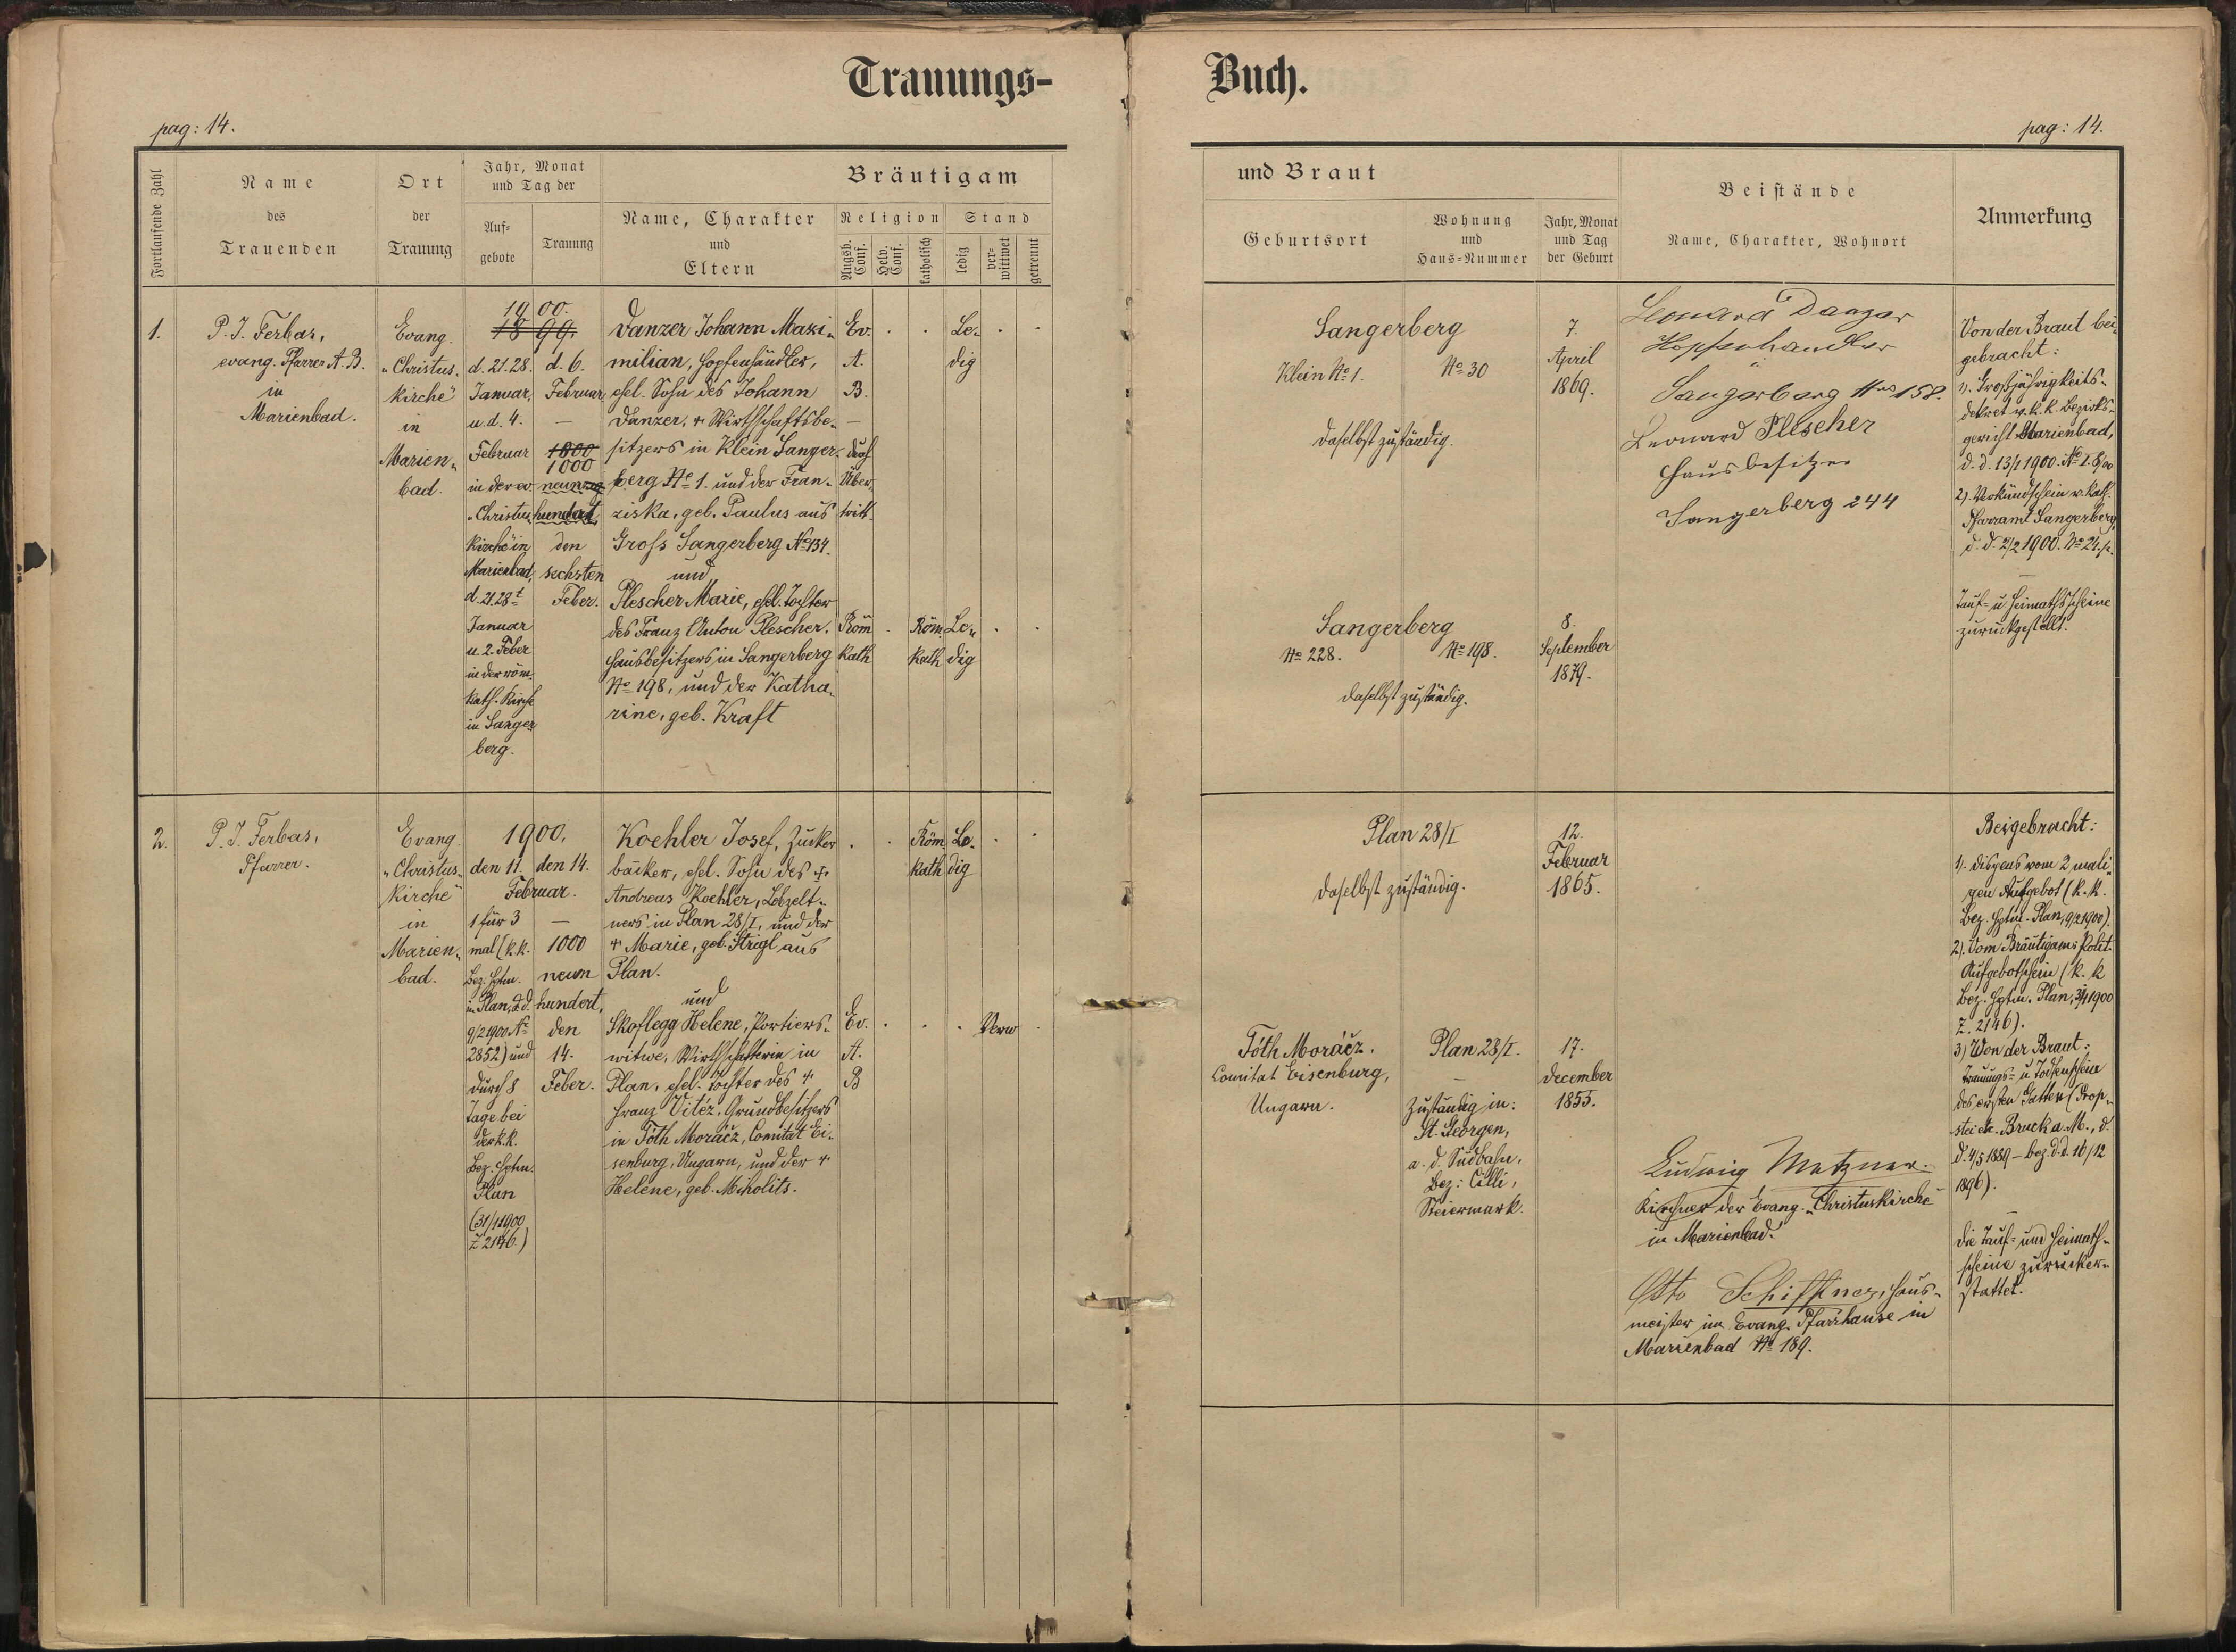 Trauungs-
Buch.
pag: 14.
pag: 14.
Fortlaufende Zahl
Name
des
Trauenden
Ort
der
Trauung
Jahr, Monat
und Tag der
Auf-
gebote
Trauung
Bräutigam
Name, Charakter
und
Eltern
Religion
Augsb. Conf.
Helv. Conf.
katholisch
Stand
ledig
ver-
wittwet
getrennt
und Braut
Geburtsort
Wohnung
und
Haus-Nummer
Jahr, Monat
und Tag
der Geburt
Beistände
Name, Charakter, Wohnort
Anmerkung
1.
P. J. Ferbas,
evang. Pfarrer A. B.
in
Marienbad.
Evang.
"Christus-
Kirche"
in
Marien-
bad.
1900.
1899.
d. 21. 28.
Januar,
u. d. 4.
Februar
in der ev.
"Christus
Kirche" in
Marienbad,
d. 21. 28t
Januar
u. 2. Feber
in der röm.
kath. Kirche
in Sanger
berg.
d. 6.
Februar
—
1800
1000
neunzig
hundert,
den
sechsten
Feber.
Danzer Johann Maxi-
milian, Hopfenhändler,
ehel. Sohn des Johann
Danzer, + Wirthschaftsbe-
sitzers in Klein Sanger-
berg No 1. und der Fran-
ziska, geb. Paulus aus
Gross Sangerberg No 134.
und
Plescher Marie, ehel. Tochter
des Franz Anton Plescher,
Hausbesitzers in Sangerberg
No 198, und der Katha-
rine, geb. Kraft
Ev.
A.
B.
—
durch
Über-
tritt.
Le-
dig
Röm
Kath
Röm.
Kath
Le-
dig
Sangerberg
Klein No 1.
No 30
daselbst zuständig.
7.
April
1869.
Leonard Danzer
Hopfenhändler
Sangerberg Nro 158.
Leonard Plescher
Hausbesitzer
Sangerberg 244
Von der Braut bei-
gebracht:
1). Grossjährigkeits-
dekret v. k. k. Bezirks-
gericht Marienbad,
d. d. 13/1 1900. No
2). Verkündschein v. kath.
Pfarramt Sangerberg,
d. d. 2/2 1900. No 24. p.
—
Tauf- u. Heimathsscheine
zurückgestellt.
Sangerberg
No 228.
No 198.
daselbst zuständig.
8.
September
1879.
2.
P. J. Ferbas,
Pfarrer.
Evang.
"Christus-
Kirche"
in
Marien-
bad.
1900.
den 11. den 14.
Februar.
1 für 3
mal (k. k.
Bez. Hptm.
in Plan, d. d.
9/2 1900 No
2852) und
durch 8
Tage bei
der k. k.
Bez. Hptm.
Plan
(31/1 1900
Z 2146.)
—
1000
neun
hundert,
den
14.
Feber.
Koehler Josef, Zucker
bäcker, ehel. Sohn des +
Andreas Koehler, Lebzelt-
ners in Plan 28/I, und der
+ Marie, geb. Strigl aus
Plan.
und
Skoflegg Helene, Portiers-
witwe, Wirthschafterin in
Plan, ehel. Tochter des +
Franz Vitéz, Grundbesitzers
in Tóth Morácz, Comitat Ei-
senburg, Ungarn, und der +
Helene, geb. Miholits.
Röm.
Kath
Le-
dig
Ev.
A.
B
Verw
Plan 28/I
daselbst zuständig.
12.
Februar
1865.
Tóth Morácz,
Comitat Eisenburg,
Ungarn.
Plan 28/I.
—
Zuständig in:
St. Georgen,
a. d. Südbahn,
Bez: Cilli,
Steiermark.
17.
December
1855.
Ludwig Metzner.
Kirchner der Evang. "Christuskirche"
in Marienbad.
Otto Schiffner, Haus-
meister im Evang. Pfarrhause in
Marienbad No 189.
Beigebracht:
1). Dispens vom 2 mali-
gen Aufgebot (k. k.
Bez. Hptm. Plan, 9/2 1900).
2). Vom Bräutigam: Polit.
Aufgebotschein (k. k
Bez. Hptm. Plan, 31/1 1900
Z. 2146).
3) Von der Braut:
Trauungs- u. Todtenschein
des ersten Gatten (Prop-
stei etc. Bruck a. M., d.
d. 4/5 1889 – bez. d. d. 16/12
1896).
—
Die Tauf- und Heimath-
scheine zurücker-
stattet.